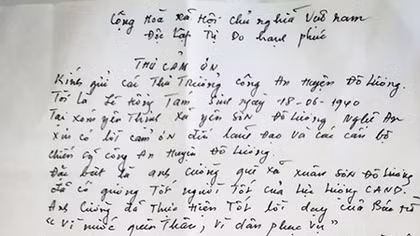 Cộng Hoà xã Hội chủ nghĩa Việt nam
Độc Lập Tự Do hạnh phúc
THƯ CẢM ƠN
Kính gửi các Thủ Trưởng công An Huyện Đô Lương.
Tôi là Lê Hồng Tâm, sinh ngày 18-06-1940
Tại xóm yên Thịnh Xã yên SƠN Đô Lương Nghệ An
xin có lời cảm ƠN đến lãnh đạo và các cán bộ
chiến sỹ công An Huyện Đô Lương.
Đặc biệt là anh cường quê xã xuân SƠN Đô Lương
đã có gương Tốt người Tốt của Lực Lượng CAND.
Anh Cường đã Thực Hiện Tốt lời dạy của Bác
"Vì nước quên Thân, Vì dân phục vụ"